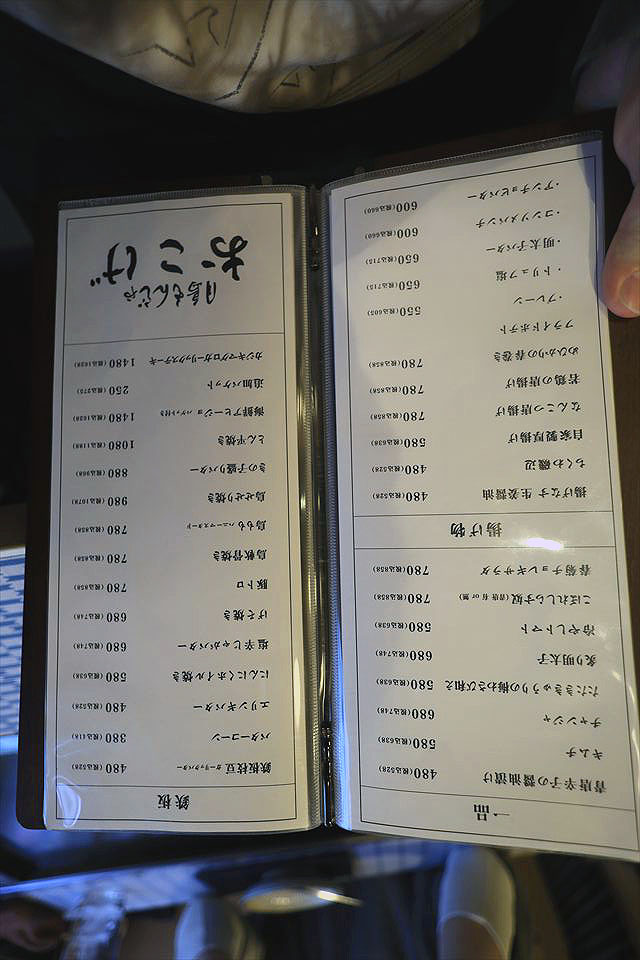 一品
青唐辛子の醤油漬け 480(税込528)
キムチ 580(税込638)
チャンジャ 680(税込748)
たたききゅうりの梅わさび和え 580(税込638)
炙り明太子 680(税込748)
冷やしトマト 580(税込638)
こぼれしらす奴(青唐 or 無) 780(税込858)
春菊チョレギサラダ 780(税込858)
揚げ物
揚げなす 生姜醤油 480(税込528)
ちくわ磯辺 480(税込528)
自家製厚揚げ 580(税込638)
なんこつ唐揚げ 780(税込858)
若鶏の唐揚げ 780(税込858)
めひかりの春巻き 780(税込858)
フライドポテト
・プレーン 550(税込605)
・トリュフ塩 650(税込715)
・明太子バター 650(税込715)
・コンソメパンチ 600(税込660)
・アンチョビバター 600(税込660)
鉄板
鉄板枝豆 ガーリックバター 480(税込528)
バターコーン 380(税込418)
エリンギバター 480(税込528)
にんにくホイル焼き 580(税込638)
塩辛じゃがバター 680(税込748)
げそ焼き 680(税込748)
豚トロ 780(税込858)
鳥軟骨焼き 780(税込858)
鳥もも ハニーマスタード 780(税込858)
鳥せせり焼き 980(税込1078)
きの子盛りバター 880(税込968)
とん平焼き 1080(税込1188)
海鮮アヒージョ バゲット付き 1480(税込1628)
追加バケット 250(税込275)
カジキマグロガーリックステーキ 1480(税込1628)
月島もんじゃ
おこげ